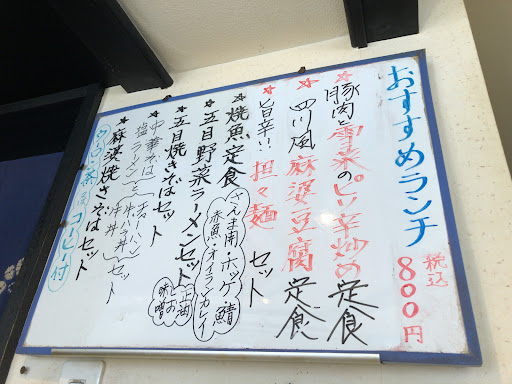 おすすめランチ
税込
800円
★豚肉と雪菜のピリ辛炒め定食
★四川風麻婆豆腐定食
★旨辛い担々麺セット
★焼魚定食
さんま開・ホッケ・鯖
赤魚・オイランカレイ
★五目野菜ラーメンセット
正油
しお
味噌
★五目焼きそばセット
★中華そば
塩ラーメン
と
チャーハン
牛丼
セット
★麻婆焼きそばセット
コーヒー付